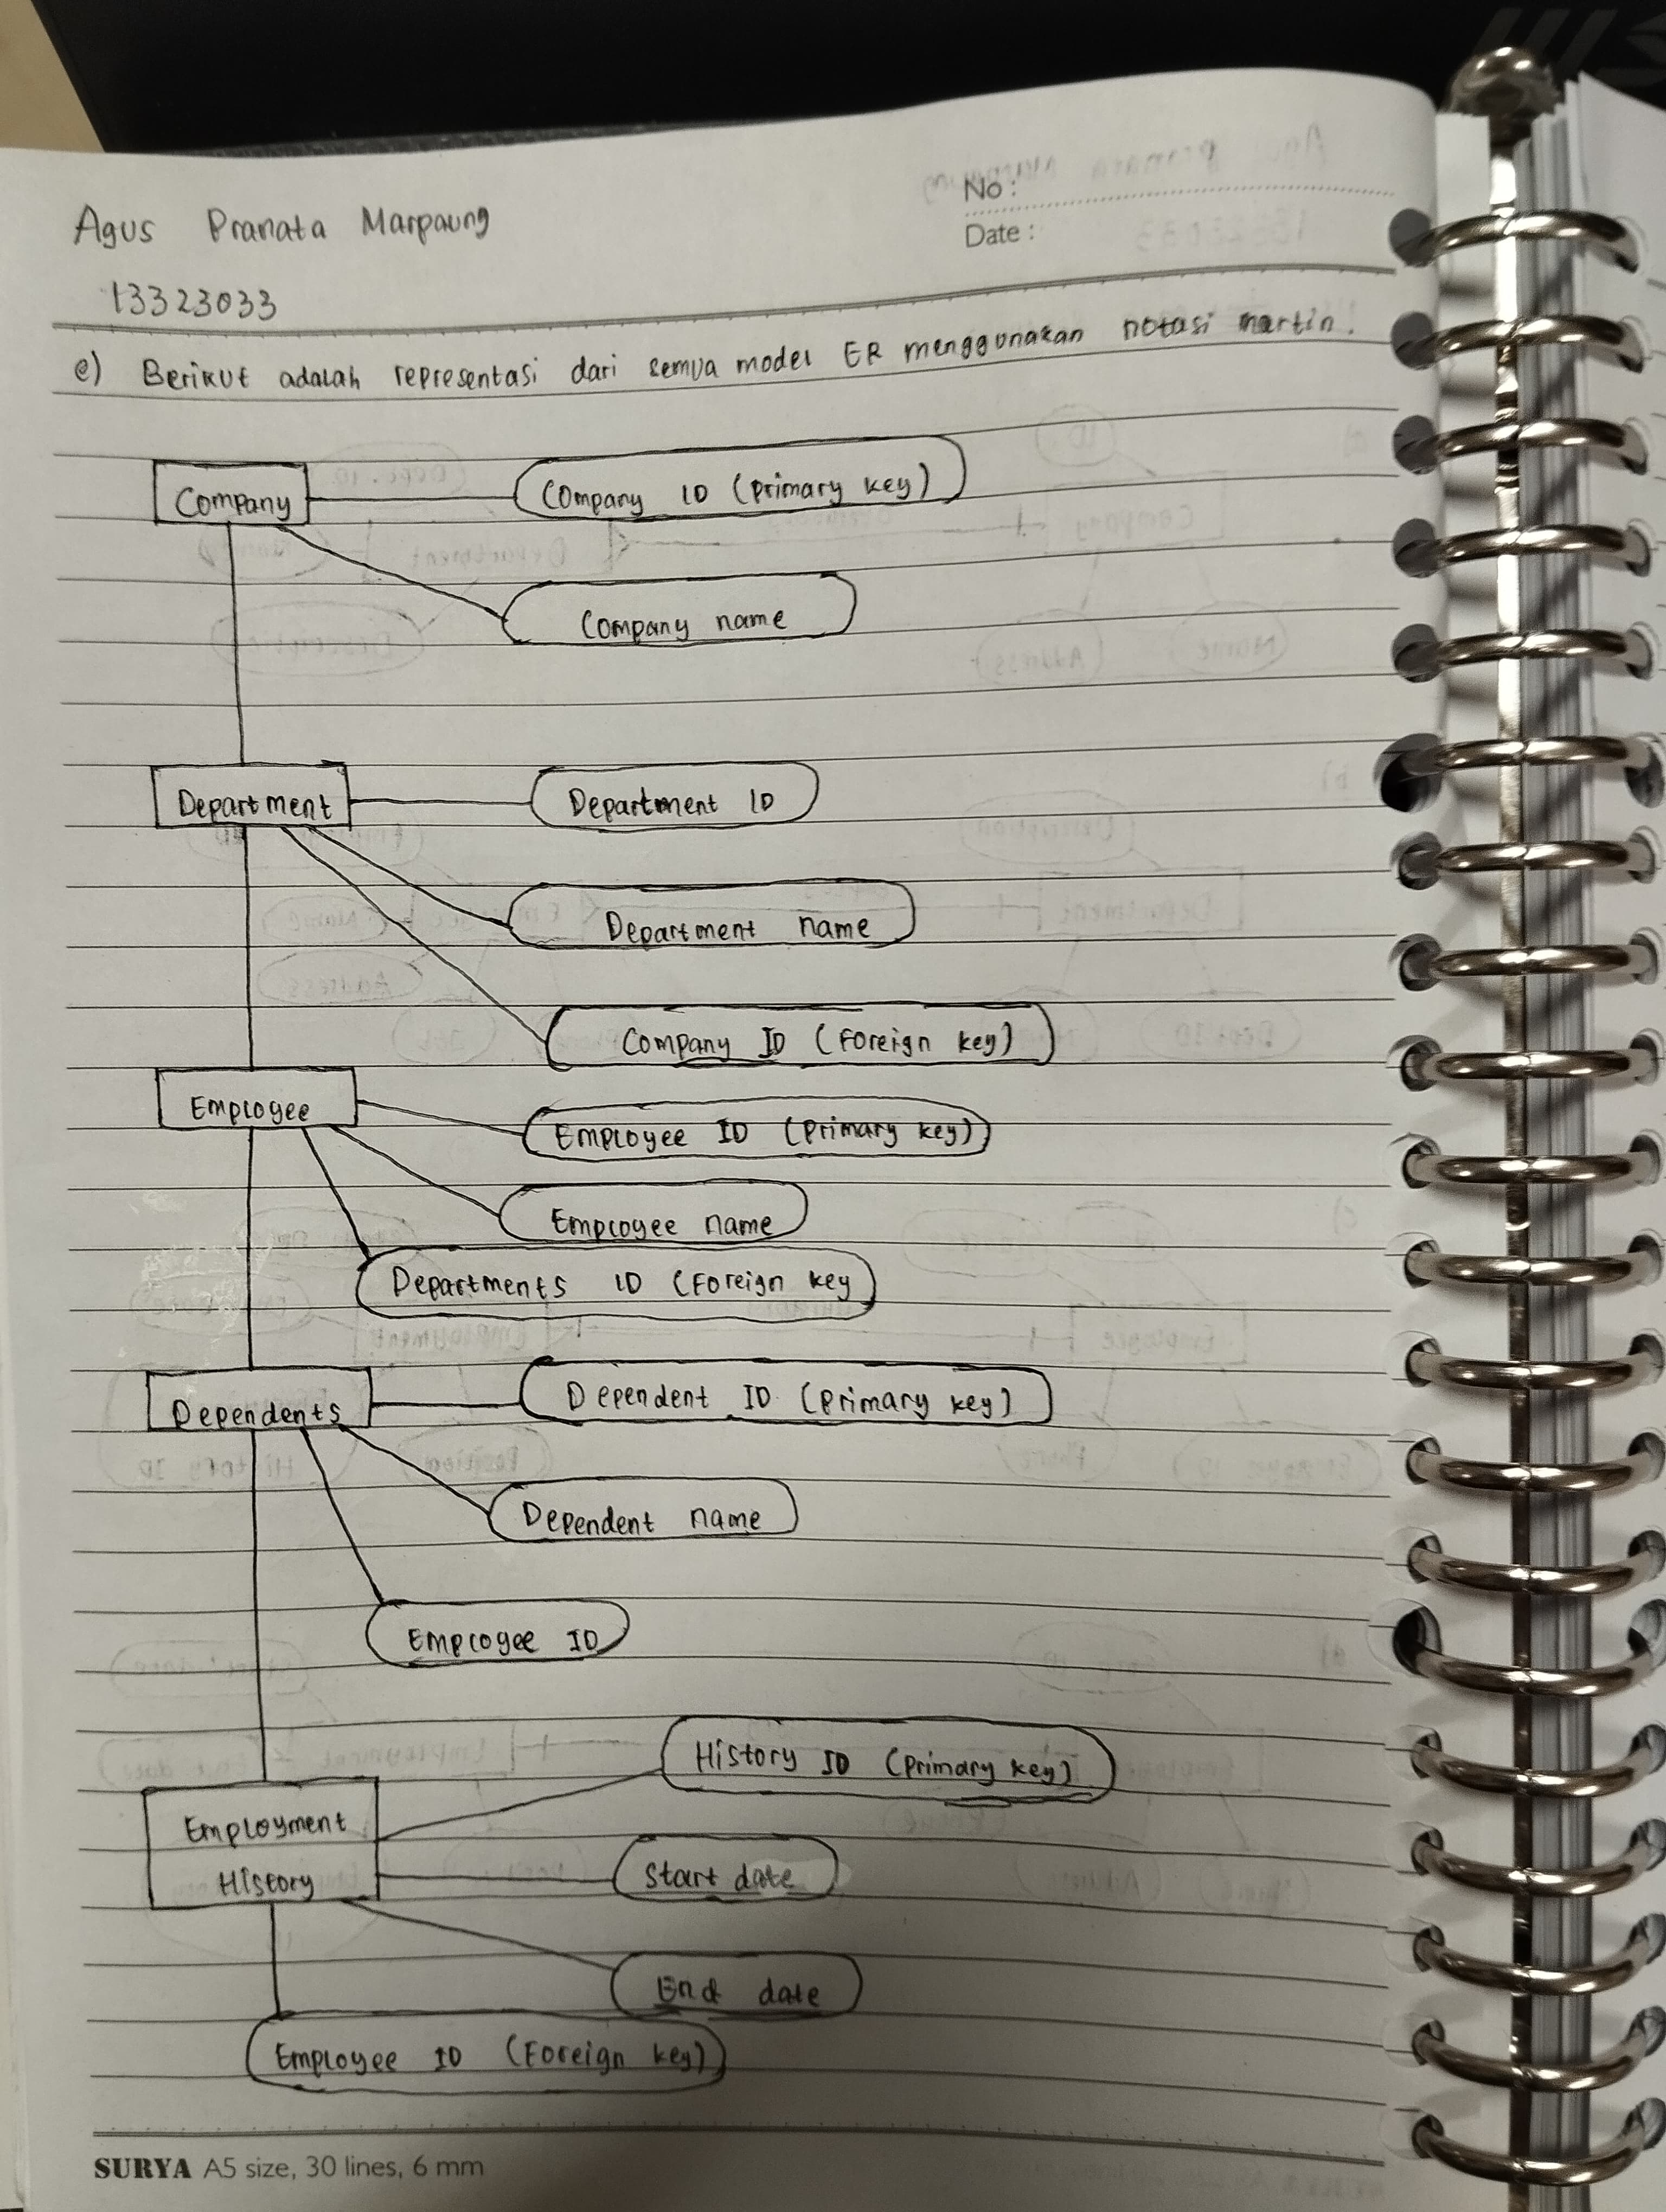 Agus Pranata Marpaung
No :
Date :
13323033
e) Berikut adalah representasi dari semua model ER menggunakan notasi martin.
Company
Company ID (Primary key)
Company name
Department
Department ID
Department name
Company ID (Foreign key)
Employee
Employee ID (Primary key)
Employee name
Departments ID (Foreign key
Dependents
Dependent ID (Primary key)
Dependent name
Employee ID
History ID (Primary key)
Employment
History
Start date
End date
Employee ID (Foreign key)
SURYA A5 size, 30 lines, 6 mm